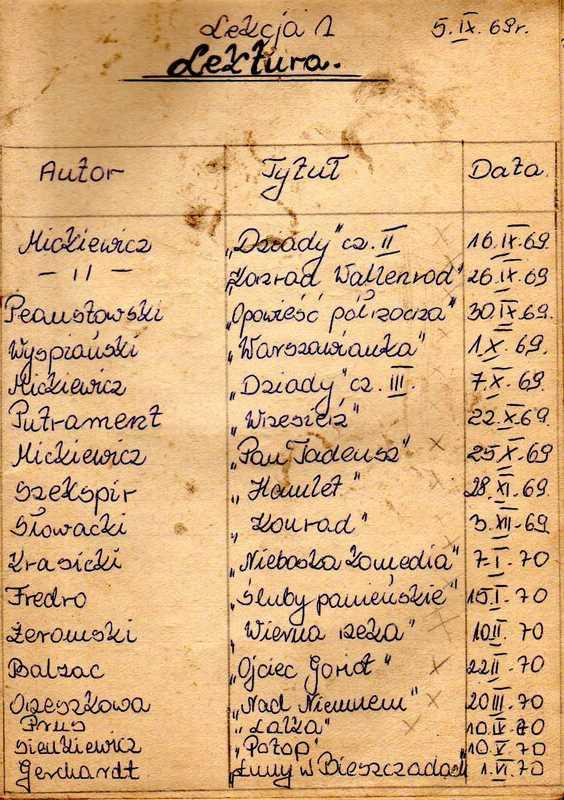 Lekcja 1 5.IX.69r.
Lektura.
Autor Tytuł Data.
Mickiewicz „Dziady" cz. II 16.IX.69.
— 11 — „Konrad Wallenrod" 26.IX.69
Peaustowski „Opowieść północna" 30.IX.69.
Wyspiański „Warszawianka" 1.X.69.
Mickiewicz „Dziady" cz. III. 7.X.69.
Putrament „Wrzesień" 22.X.69.
Mickiewicz „Pan Tadeusz" 25.X.69
Szekspir „Hamlet" 28.XI.69.
Słowacki „Konrad" 3.XII.69
Krasicki „Nieboska komedia" 7.I.70
Fredro „Śluby panieńskie" 15.I.70
Żeromski „Wierna rzeka" 10.II.70
Balzac „Ojciec Goriot" 22.II.70
Orzeszkowa „Nad Niemnem" 20.III.70
Prus „Lalka" 10.IV.70
Sienkiewicz „Potop" 10.V.70
Gerchardt „Łuny w Bieszczadach" 1.VI.70